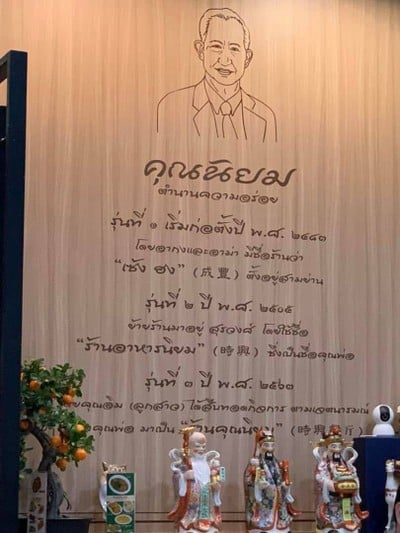 คุณนิยม
ตำนานความอร่อย
รุ่นที่ ๑ เริ่มก่อตั้งปี พ.ศ. ๒๔๔๓
โดยอากงและอาม่า มีชื่อร้านว่า
"เซ้ง ฮง" (成豐) ตั้งอยู่สามย่าน
รุ่นที่ ๒ ปี พ.ศ. ๒๕๐๕
ย้ายร้านมาอยู่ สุรวงศ์ โดยใช้ชื่อ
"ร้านอาหารนิยม" (時興) ซึ่งเป็นชื่อคุณพ่อ
รุ่นที่ ๓ ปี พ.ศ. ๒๕๖๓
คุณอิม (ลูกสาว) ได้สืบทอดกิจการ ตามเจตนารมณ์
คุณพ่อ มาเป็น "ร้านคุณนิยม" (時興